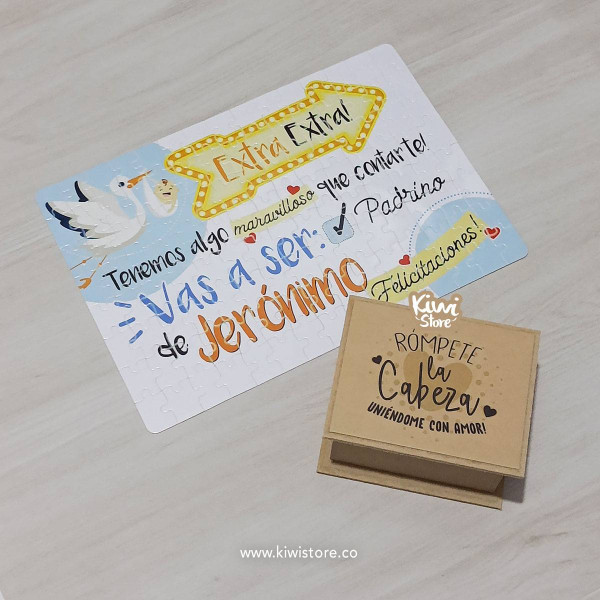 Extra Extra!
Tenemos algo maravilloso que contarte!
Vas a ser: ✓ Padrino
de Jerónimo
Felicitaciones!
Kiwi
Store
RÓMPETE
la
Cabeza
UNIÉNDOME CON AMOR!
www.kiwistore.co